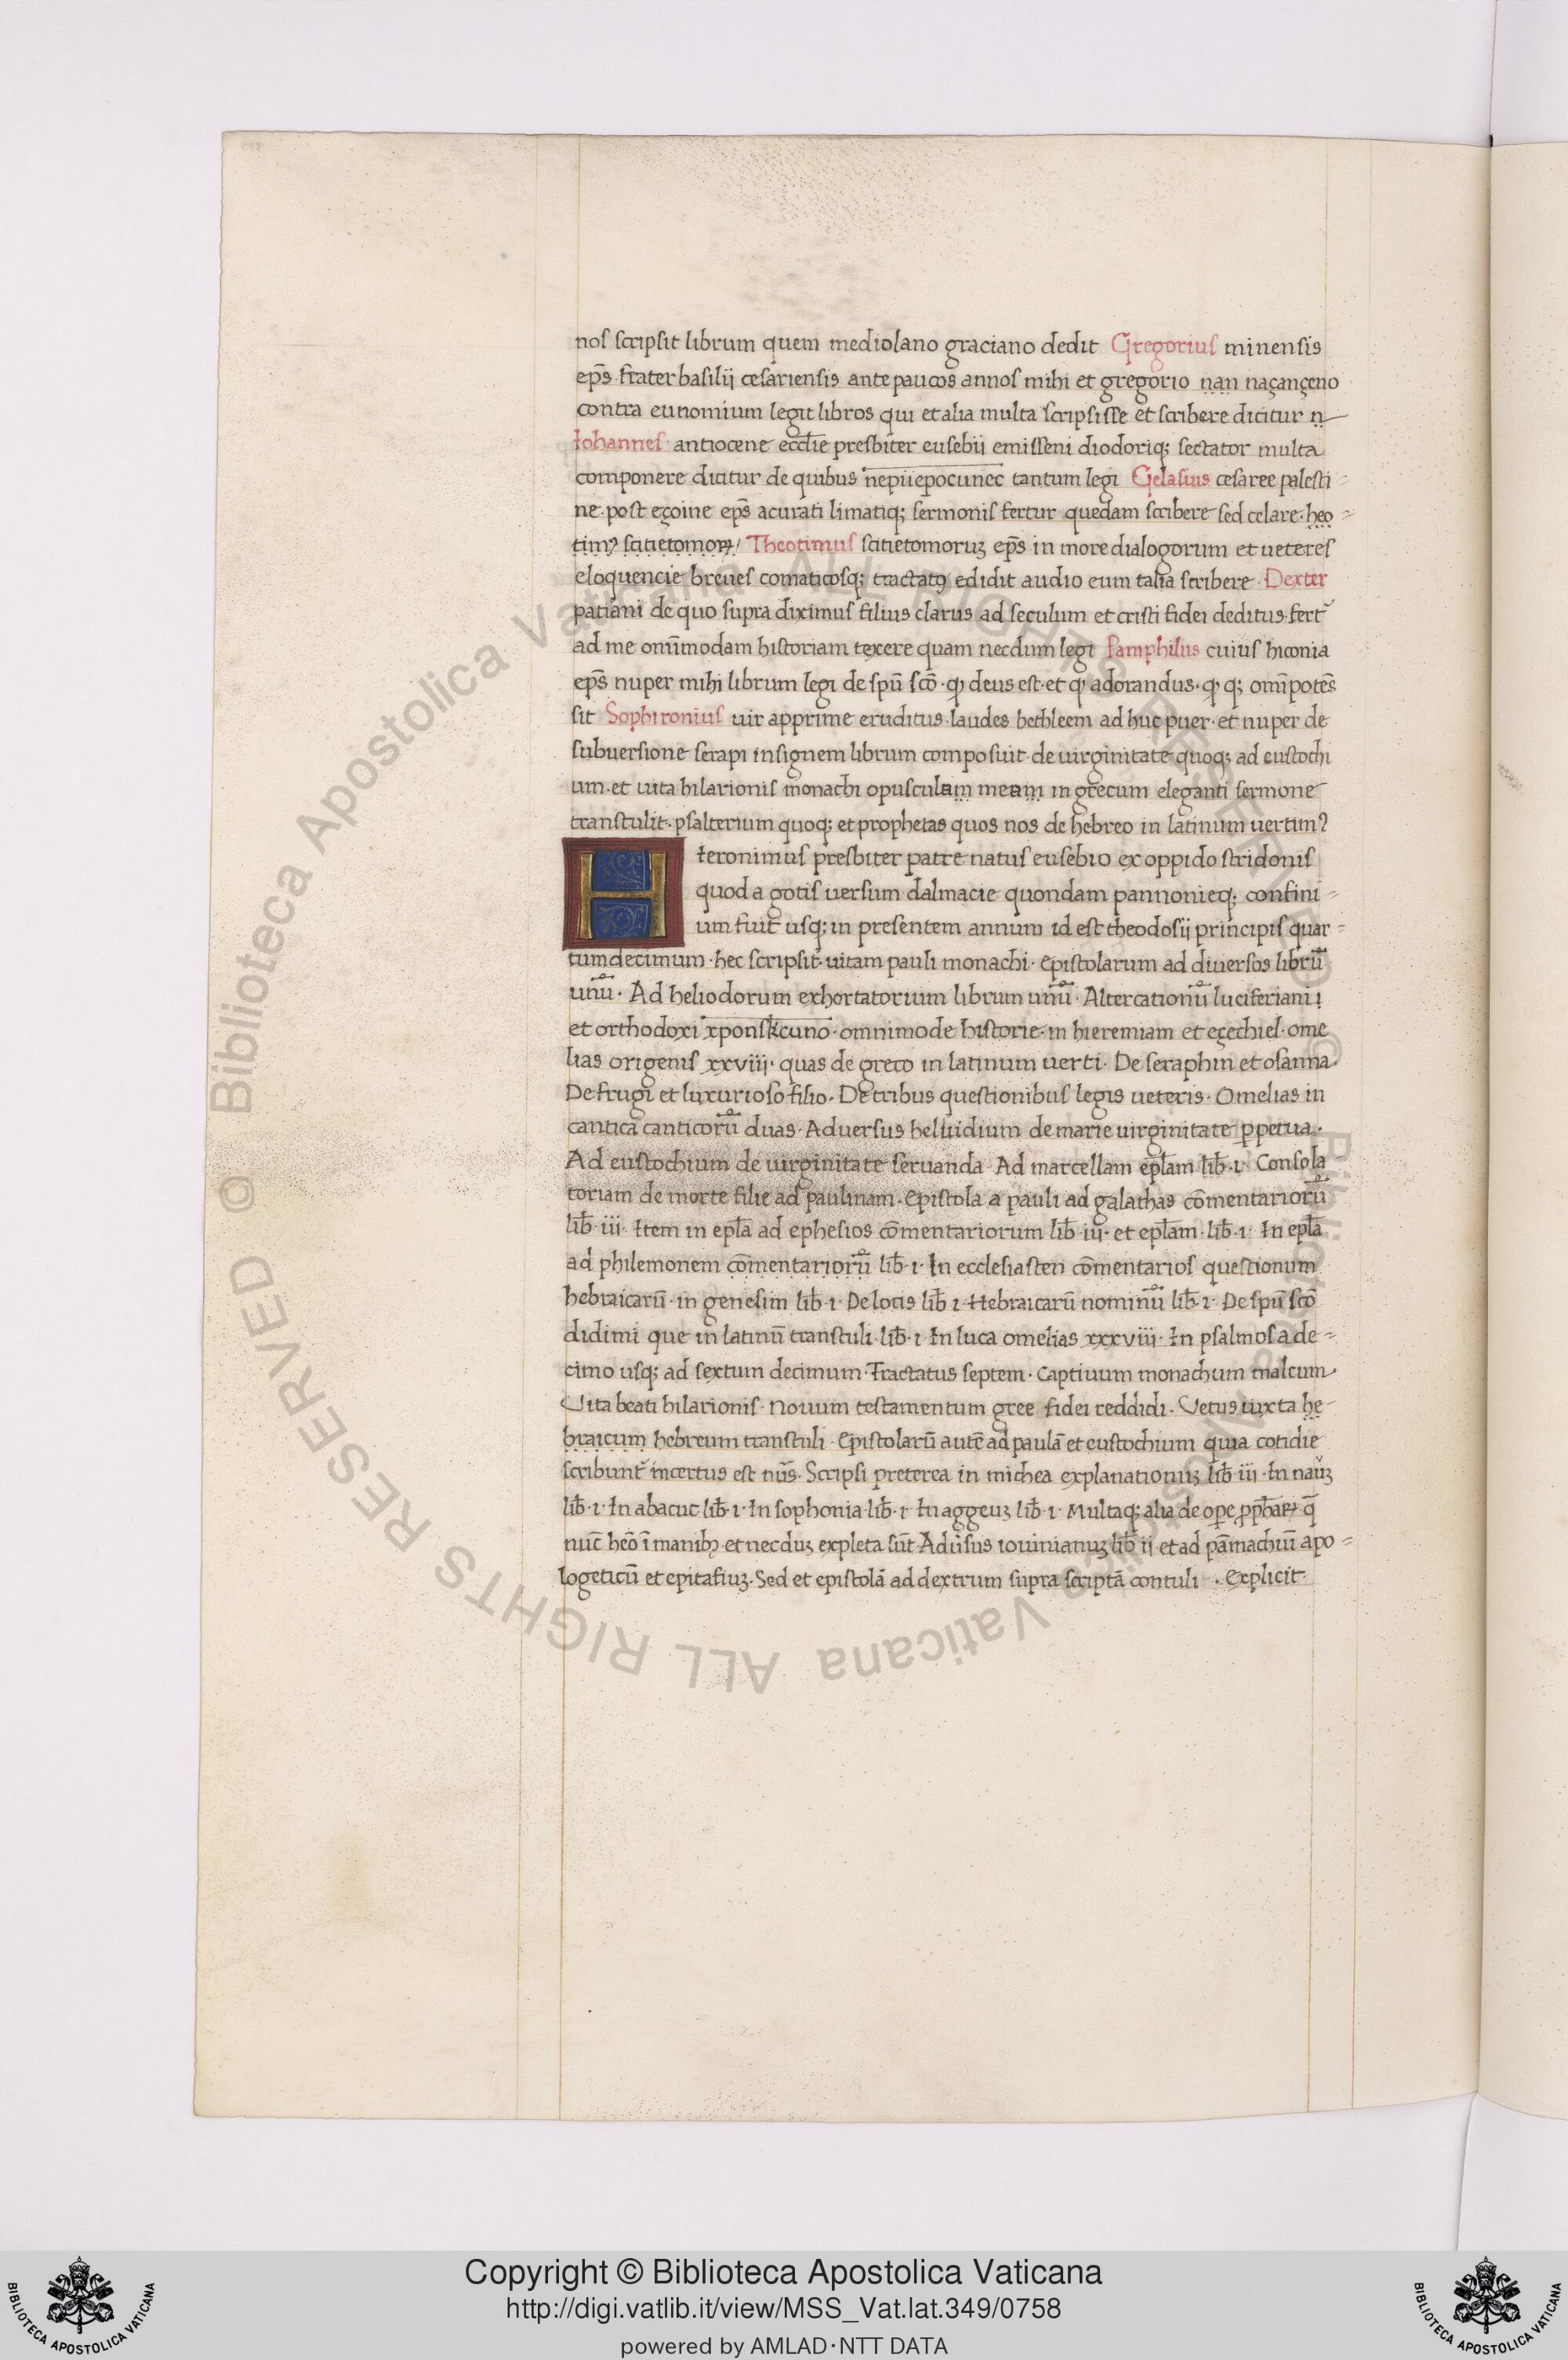 nos scripsit librum quem mediolano graciano dedit Gregorius minensis
ep̄s frater basilij cesariensis ante paucos annos mihi et gregorio nan naçançeno
contra eunomium legit libros qui et alia multa scripsisse et scribere dicitur n
Iohannes antiocene eccl̄ie presbiter eusebij emisseni diodoriq; sectator multa
componere dicitur de quibus nepiiepocunec tantum legi Gelasius cesaree palesti-
ne. post eçoine ep̄s acurati limatiq; sermonis fertur quedam scribere sed celare. heo-
timꝰ scitietomoꝝ Theotimus scitietomoruꝫ ep̄s in more dialogorum et ueteres
eloquencie breues comaticosq; tractatꝰ edidit audio eum talia scribere. Dexter
patiani de quo supra diximus filius clarus ad seculum et cristi fidei deditus. fert᷑
ad me onn̄imodam historiam texere quam necdum legi Pamphilus cuius hiconia
ep̄s nuper mihi librum legi de spū scō. ꝙ deus est. et ꝙ adorandus. ꝙ q; omīpotēs
sit Sophironius uir apprime eruditus. laudes bethleem ad huc puer. et nuper de
subuersione serapi insignem librum composuit. de uirginitate quoq; ad eustochi
um. et uita hilarionis monachi opusculam meam in grecum eleganti sermone
transtulit. psalterium quoq; et prophetas quos nos de hebreo in latinum uertimꝰ
Hieronimus presbiter patre natus eusebio ex oppido stridonis
quod a gotis uersum dalmacie quondam pannonieq; confini-
um fuit usq; in presentem annum id est theodosij principis quar-
tumdecimum. hec scripsit. uitam pauli monachi. Epistolarum ad diuersos librū
unū. Ad heliodorum exhortatorium librum unū. Altercationū luciferiani
et orthodoxi xponskcuno. omnimode historie. in hieremiam et eçechiel. ome
lias origenis xxviii. quas de greco in latinum uerti. De seraphin et osanna.
De frugi et luxurioso filio. De tribus questionibus legis ueteris. Omelias in
cantica canticorū duas. Aduersus heluidium de marie uirginitate ꝑpetua.
Ad eustochium de uirginitate seruanda. Ad marcellam epl̄am lib̄. i. Consola
toriam de morte filie ad paulinam. Epistola a pauli ad galathas cōmentariorū
lib̄. iii. Item in epl̄a ad ephesios cōmentariorum lib̄. iii. et epl̄am. lib̄. i. In epl̄a
ad philemonem cōmentariorū lib̄. i. In ecclesiasten cōmentarios questionum
hebraicarū. in genesim lib̄. i. De locis lib̄ i. Hebraicarū nominū lib̄. i. De spū scō
didimi que in latinū transtuli. lib̄. i In luca omelias xxxviii. In psalmos a de-
cimo usq; ad sextum decimum. Tractatus septem. Captiuum monachum malcum
Uita beati hilarionis. Nouum testamentum gree fidei reddidi. Uetus iuxta he-
braicum hebreum transtuli. Epistolarū autē ad paulā et eustochium quia cotidie
scribunt᷑ incertus est nūs. Scripsi preterea in michea explanationuꝫ lib̄. iii. In nauꝫ
lib̄. i. In abacuc lib̄. i. In sophonia. lib̄. i. In aggeuꝫ lib̄. i. Multaq; alia de oꝑe ꝓph̄aꝝ q̄
nūc heō ī manibꝫ. et necduꝫ expleta sūt. Adūsus iouinianuꝫ lib̄ ii. et ad pāmachiū apo-
logeticū et epitafiuꝫ. Sed et epistolā ad dextrum supra scriptā contuli. Explicit.
© Biblioteca Apostolica Vaticana ALL RIGHTS RESERVED © Biblioteca Apostolica Vaticana ALL RIGHTS RESERVED
Copyright © Biblioteca Apostolica Vaticana
http://digi.vatlib.it/view/MSS_Vat.lat.349/0758
powered by AMLAD·NTT DATA
BIBLIOTECA APOSTOLICA VATICANA
BIBLIOTECA APOSTOLICA VATICANA